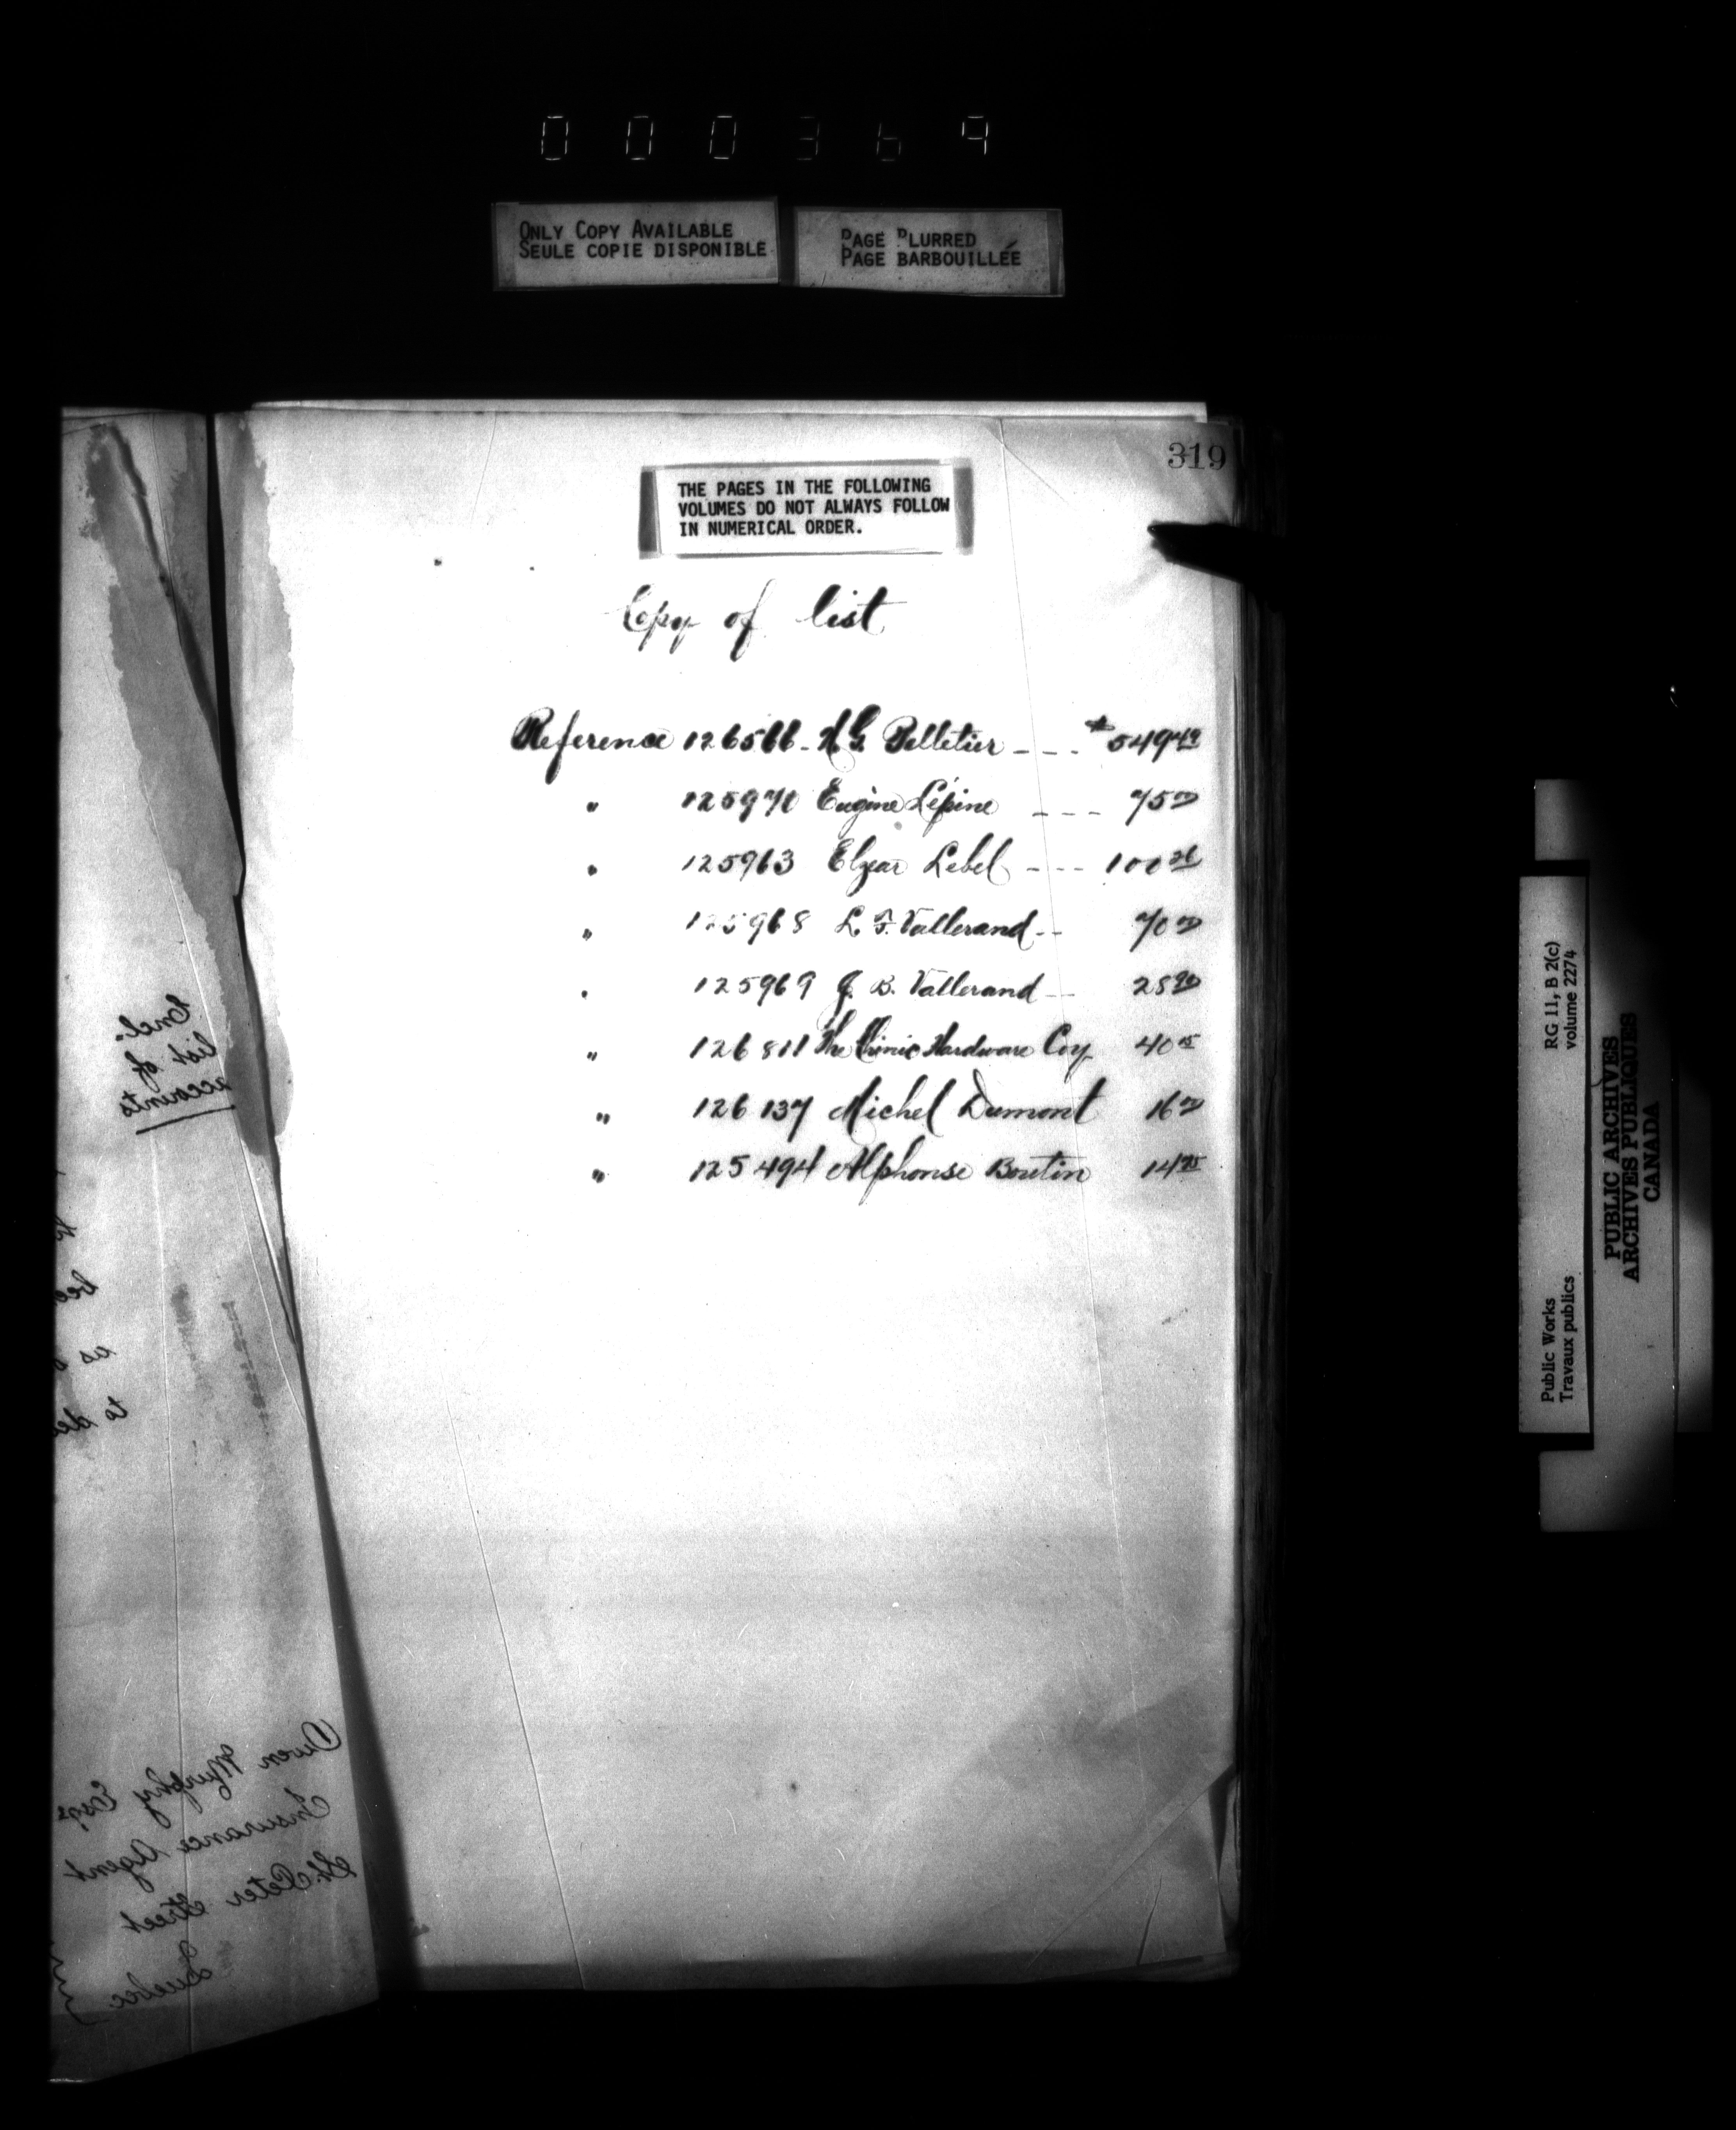 000369
ONLY COPY AVAILABLE
SEULE COPIE DISPONIBLE
PAGE BLURRED
PAGE BARBOUILLÉE
319
THE PAGES IN THE FOLLOWING
VOLUMES DO NOT ALWAYS FOLLOW
IN NUMERICAL ORDER.
Copy of list
Reference 126566 - H G. Pelletier - - - $549 49
" 125970 Eugine Lépine - - - 75 00
" 125963 Elzear Lebel - - - 100 26
" 125968 L. F. Vallerand - - 70 00
" 125969 J. B. Vallerand - - 28 90
" 126811 The Chinic Hardware Coy 40 15
" 126137 Michel Dumont 16 00
" 125494 Alphonse Boutin 14 75
Encl.
list of
accounts
to
as
to
Owen Murphy Esqr
Insurance Agent
St. Peter Street
Quebec
RG 11, B 2(c)
volume 2274
Public Works
Travaux publics
PUBLIC ARCHIVES
ARCHIVES PUBLIQUES
CANADA